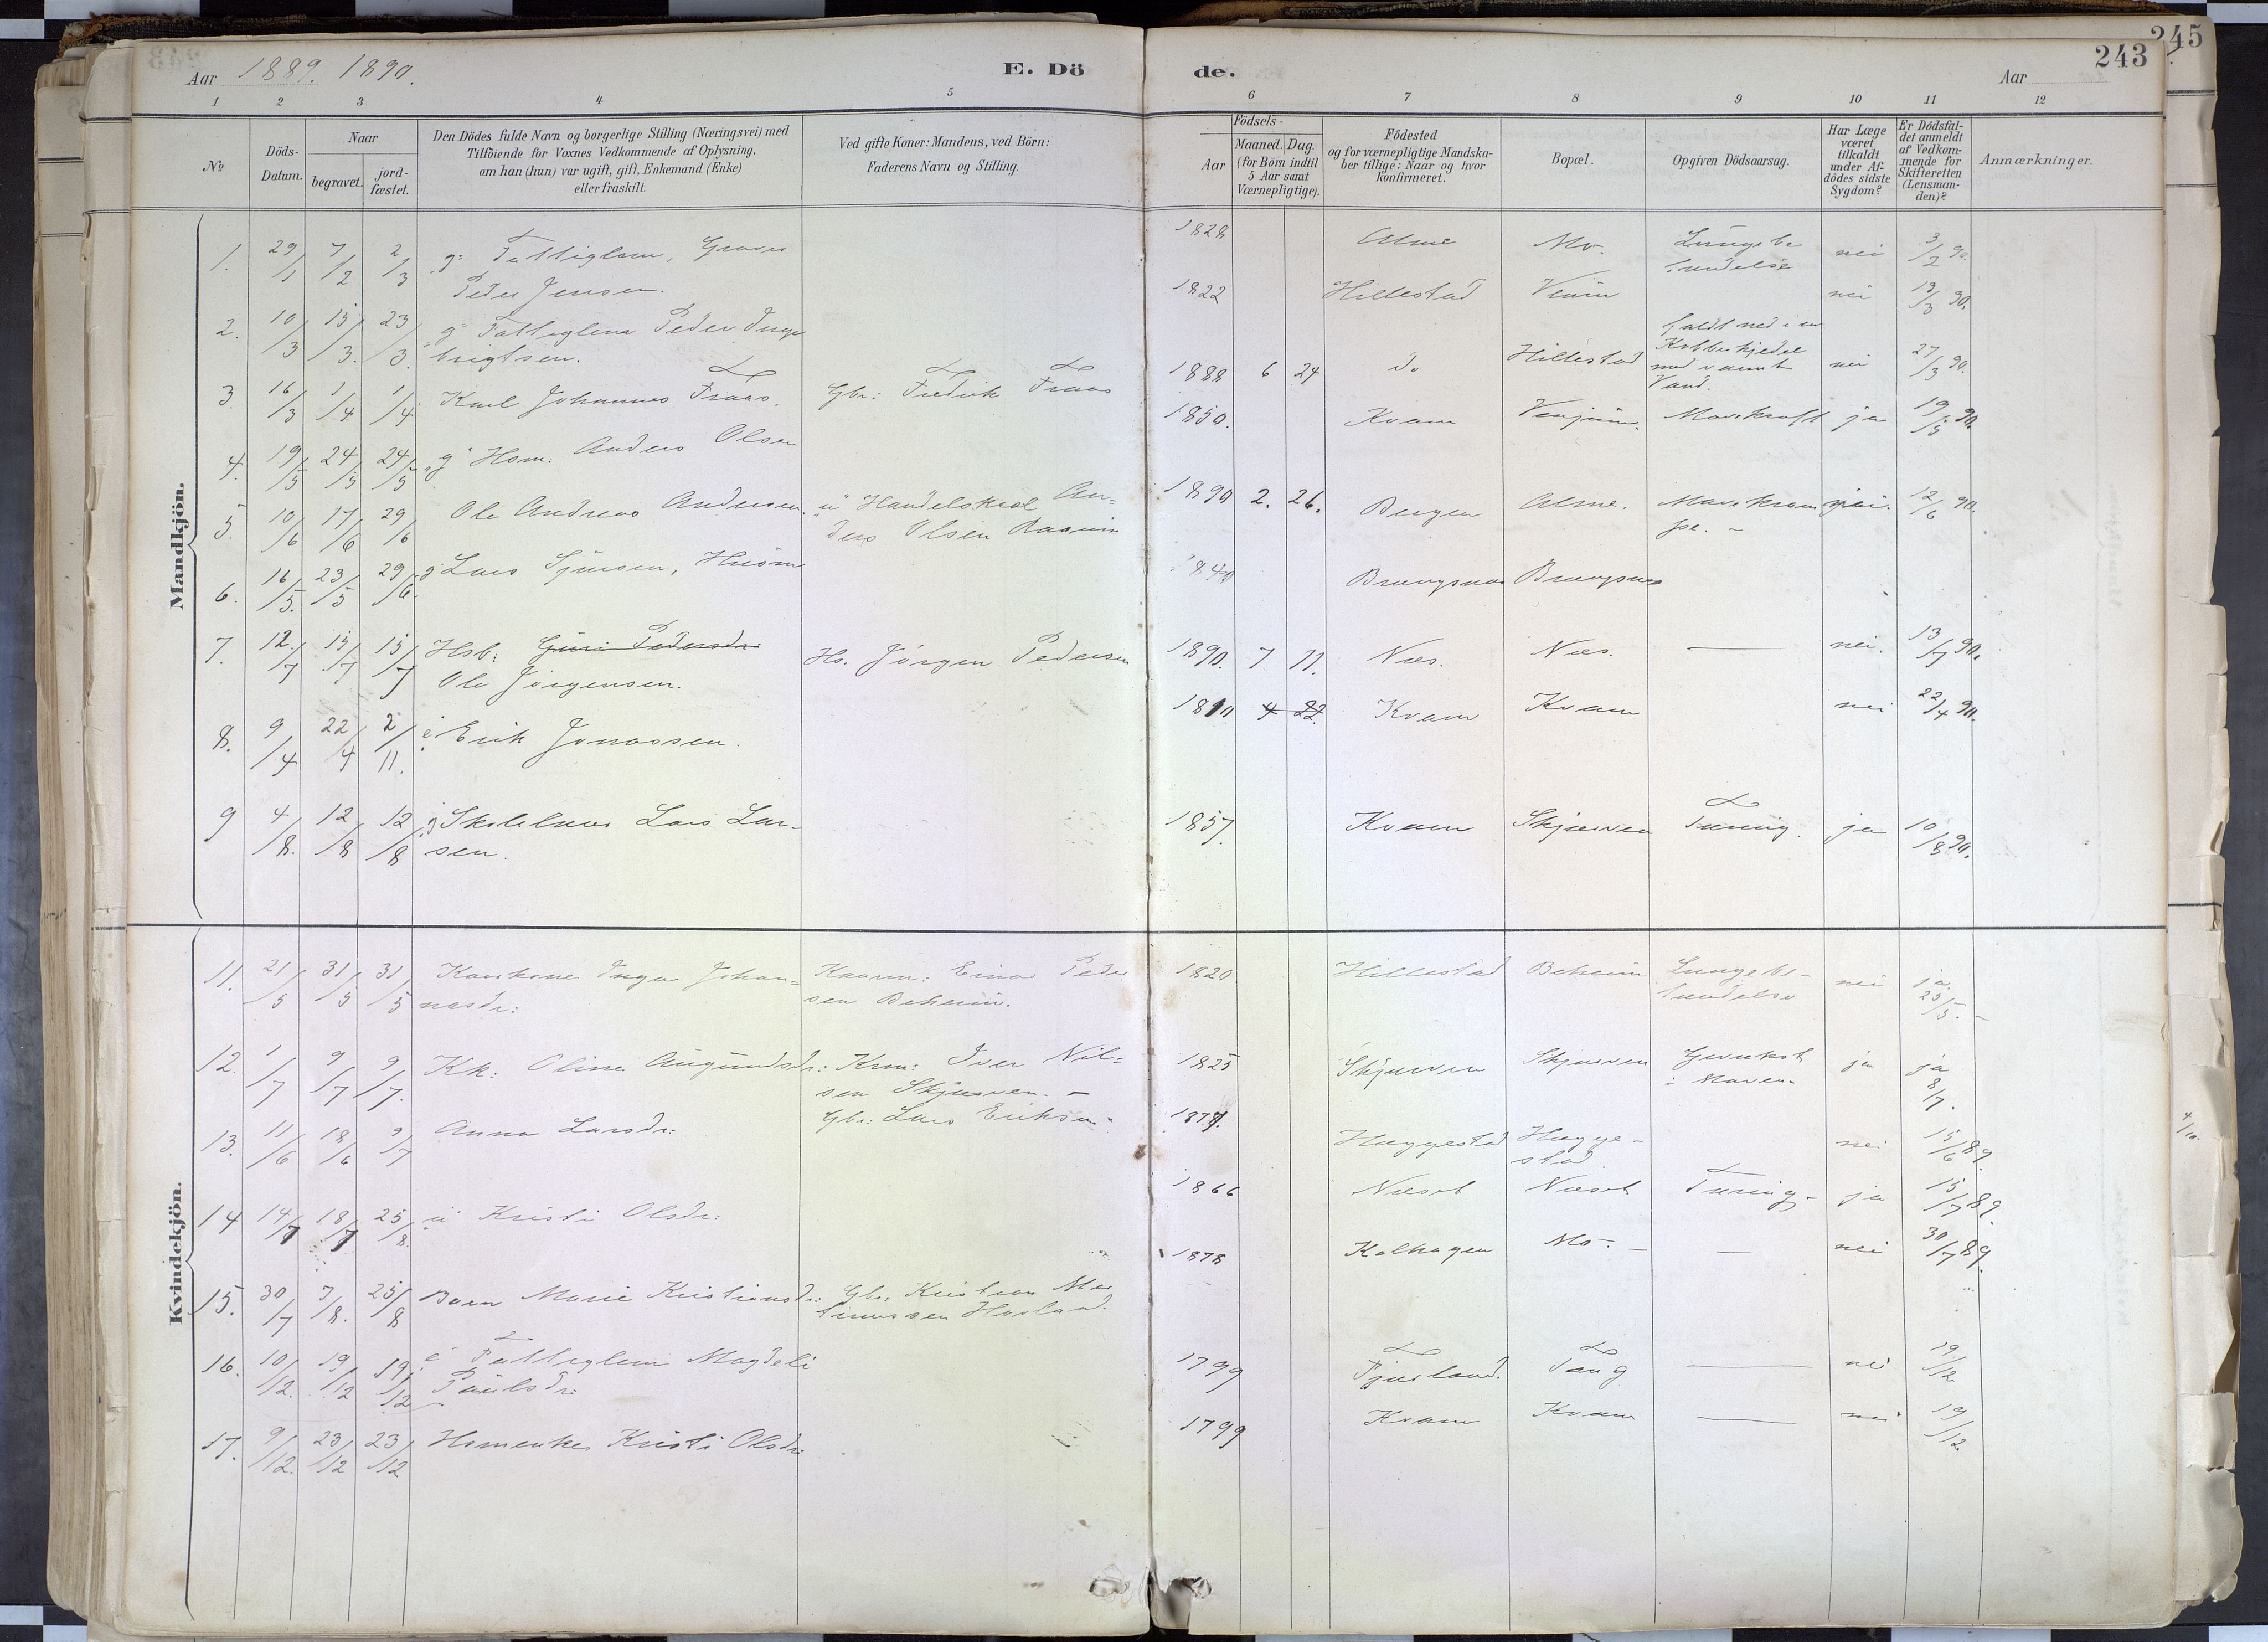 245
243
Aar 1889. 1890.
E. Döde.
Aar
1 2 3 4 5 6 7 8 9 10 11 12
No
Döds-Datum.
Naar
begravet.
jordfæstet.
Den Dödes fulde Navn og borgerlige Stilling (Næringsvei) med
Tilföiende for Voxnes Vedkommende af Oplysning,
om han (hun) var ugift, gift, Enkemand (Enke)
eller fraskilt.
Ved gifte Koner: Mandens, ved Börn:
Faderens Navn og Stilling.
Födsels-
Aar
Maaned. Dag.
(for Börn indtil
5 Aar samt
Værnepligtige).
Födested
og for værnepligtige Mandska-
ber tillige: Naar og hvor
konfirmeret.
Bopæl.
Opgiven Dödsaarsag.
Har Læge
været
tilkaldt
under Af-
dödes sidste
Sygdom?
Er Dödsfal-
det anmeldt
af Vedkom-
mende for
Skifteretten
(Lensman-
den)?
Anmærkninger.
Mandkjön.
1. 29/1 7/2 2/3 g: Fattiglem, Peder Jensen. 1828 Alme Mo. Lungebetændelse nei 3/2 90.
2. 10/3 15/3. 23/3. g: Fattiglem Peder Ingebrigtsen. 1822 Hillestad nei 13/3 90.
3. 16/3 1/4 1/4 Karl Johannes Fraas. Gbr: Fredrik Fraas 1888 6 24 do Hillestad Faldt ned i en Kobberkjedel med varmt Vand. nei 27/3 90.
4. 19/5 24/5 24/5 "g" Hsm: Anders Olsen 1850. Kvam Mavekræft ja 19/5 90.
5. 10/6 17/6 29/6 Ole Andreas Andersen. "u" Handelskarl Anders Olsen 1890 2. 26. Bergen Alme. Mavekrampe. - nei. 12/6 90.
6. 16/5. 23/5 29/6. g Lars Husm 1840
7. 12./7 15/7 15/7 Hsb: Guri Pedersdr Ole Jørgensen. Hs. Jørgen Pedersen 1890. 7 11. Næs. Næs. — nei. 13/7 90.
8. 9/4 22/4 2/11. e Erik Jonassen. 1810 4 22 Kvam Kvam nei 22/4 90.
9 4/8. 12/8 12/8 g Skolelærer Lars Larsen. 1857. Kvam Skjærven Tæring. ja 10/8 90.
Kvindekjön.
11. 21/5 31/5 31/5 Kaarkone Inga Johannesdr: Kaarm: Einar Pedersen Beheim. 1820. Hillestad Beheim Lungebetændelse nei ja. 25/5. -
12. 1/7 9/7 9/7. Kk: Oline Augundsdr: Krm: Iver Nilsen Skjærven. - 1825 Skjærven Skjærven i Maven. ja ja 8/7.
13. 11/6 18/6 9/7 Anna Larsdr: Gbr: Lars Eriksen. Hæggestad Hæggestad. nei 15/6 89.
14 14/7 18/7 25/8. u Kristi Olsdr: 1866 Næset Næset Tæring - ja 15/7 89.
15. 30/7 7/8. 25/8 Barn Marie Kristiansdr: Gbr: Kristian Martinussen 1878 Kolhagen Mo. - — nei 30/7 89.
16. 10/12. 19/12 19/12 e Fattiglem Magdeli Paulsdr: 1799 Fjærland. Tang — nei 19/12
17. 9/12. 23/12 23/12 Hsmenke Kristi Olsdr: 1799 Kvam Kvam — nei 19/12
4/10.